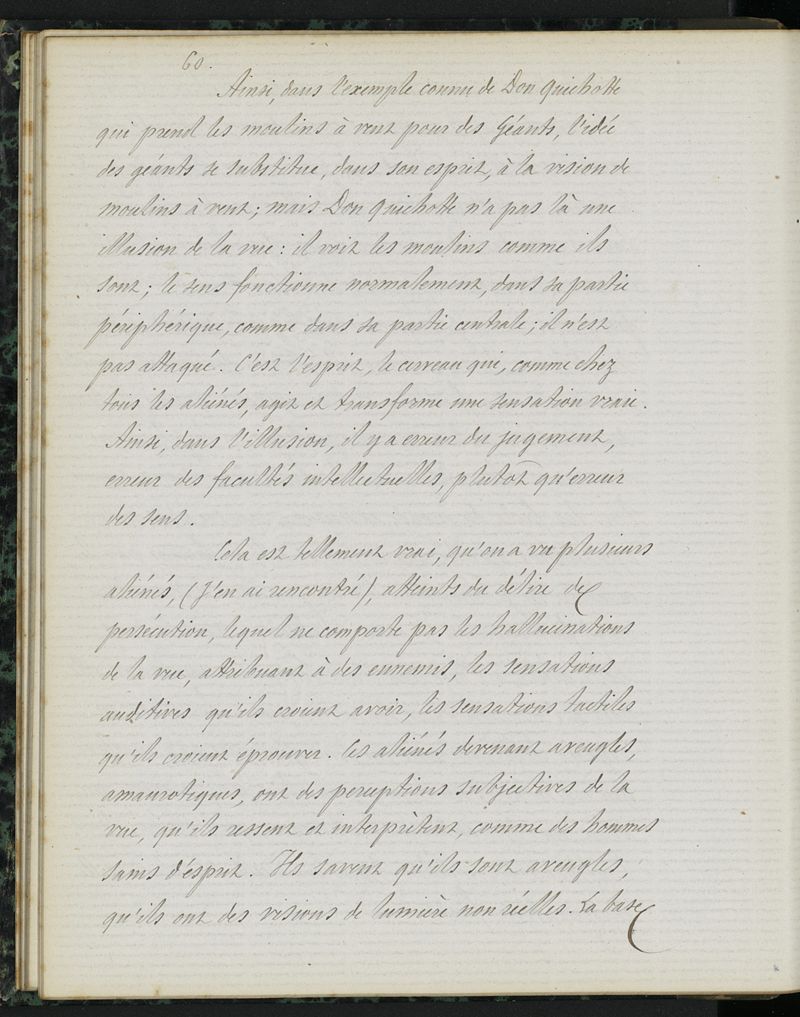 60.
Ainsi, dans l'exemple connu de Don Quichotte
qui prend les moulins à vent pour des Géants, l'idée
des géants se substitue, dans son esprit, à la vision de
moulins à vent ; mais Don Quichotte n'a pas là une
illusion de la vue : il voit les moulins comme ils
sont ; le sens fonctionne normalement, dans sa partie
périphérique, comme dans sa partie centrale ; il n'est
pas attaqué. C'est l'esprit, le cerveau qui, comme chez
tous les aliénés, agit et transforme une sensation vraie.
Ainsi, dans l'illusion, il y a erreur du jugement,
erreur des facultés intellectuelles, plutôt qu'erreur
des sens.
Cela est tellement vrai, qu'on a vu plusieurs
aliénés, (J'en ai rencontré), atteints du délire de
persécution, lequel ne comporte pas les hallucinations
de la vue, attribuant à des ennemis, les sensations
auditives qu'ils croient avoir, les sensations tactiles
qu'ils croient éprouver. Ces aliénés devenant aveugles,
amaurotiques, ont des perceptions subjectives de la
vue, qu'ils ressent et interprètent, comme des hommes
sains d'esprit. Ils savent qu'ils sont aveugles,
qu'ils ont des visions de lumière non réelles. La base